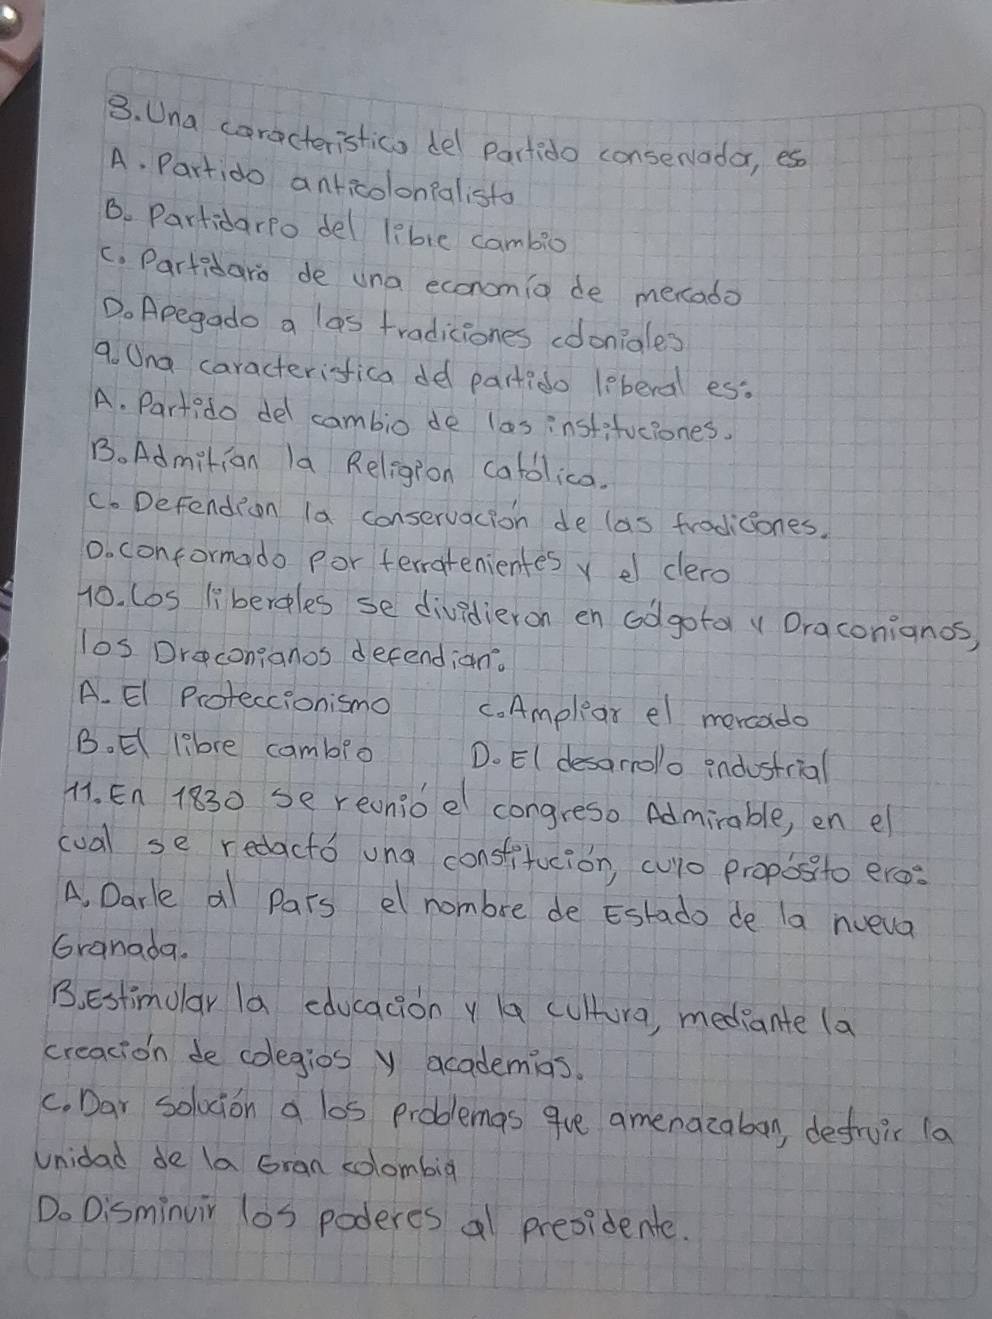 8. Una caracteristica del Partido conservador, es
A. Partido anticolonialista
B. Partidario del libre cambio
C. Partidario de una economía de mercado
D. Apegado a las tradiciones coloniales
9. Una caracteristica del partido liberal es:
A. Partido del cambio de las instituciones.
B. Admitían la Religion católica.
C. Defendian la conservación de las tradiciones.
D. conformado Por terratenientes y el clero
10. Los liberales se dividieron en Gólgota y Draconianos,
los Draconianos defendian:
A. El Proteccionismo C. Ampliar el mercado
B. El libre cambio D. El desarrollo industrial
11. En 1830 se reunió el congreso Admirable, en el
cual se redactó una constitución, cuyo propósito era:
A. Darle al País el nombre de Estado de la nueva
Granada.
B. Estimular la educación y la cultura, mediante la
creación de colegios y academias.
C. Dar solución a los problemas que amenazaban, destruir la
unidad de la Gran colombia
D. Disminuir los poderes al presidente.